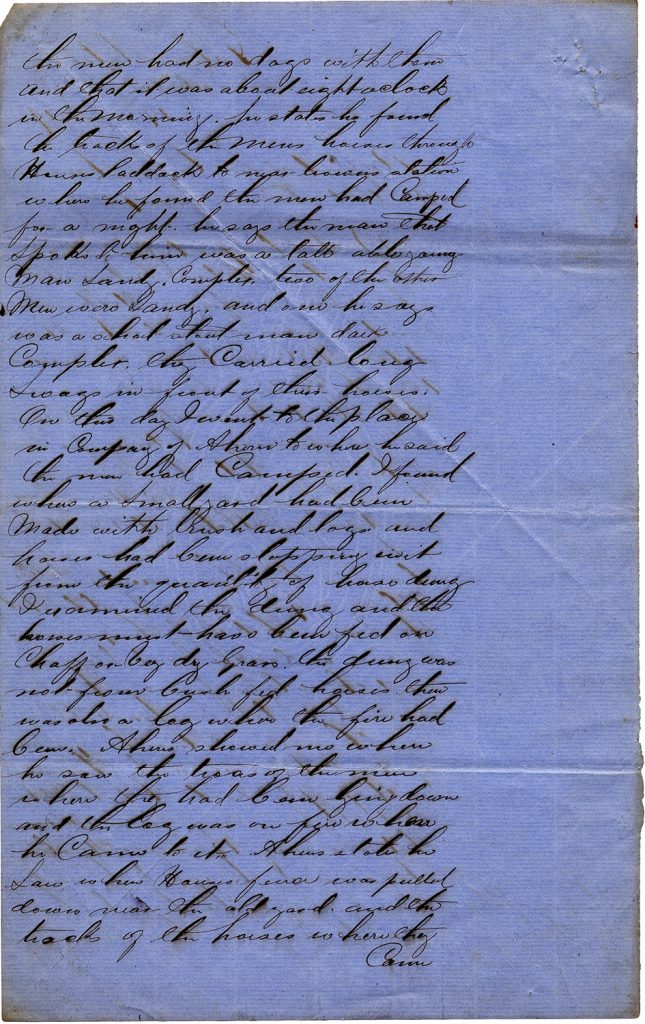 the men had no dogs with them
and that it was about eight oclock
in the morning. he states he found
the track of the mens horses through
paddock to near station
where he found the men had Camped
for a night. he says the man that
spoke to him was a tall able young
Man Sandy. Complex. two of the other
Men were Sandy. and one he says
was a short stout man dark
Complex. they Carried long
Swags in front of their horses.
On this day I went to the place
in Company of Ahern to where he said
the men had Camped. I found
where a Small yard had been
Made with brush and logs and
horses had been stopping in it
from the quantity of horse dung
I examined the dung and the
horses must have been fed on
Chaff or dry Grass. the dung was
not from bush fed horses. there
was also a log where the fire had
been. Ahern showed me where
he saw the of the men
where they had been lying down
and the log was on fire when
he Came to it. Ahern states he
Saw where was pulled
down near the old yard. and the
track of the horses where they
Came